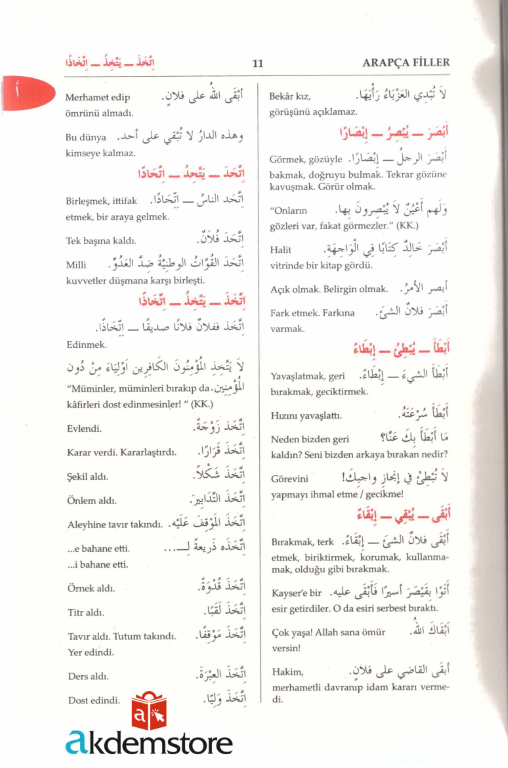 اِتَّخَذَ – يَتَّخِذُ – اِتِّخَاذًا 11 ARAPÇA FİLLER
أ
Bekâr kız, لَا تُبْدِي الْعَزْبَاءُ رَأْيَهَا.
görüşünü açıklamaz.
أَبْصَرَ – يُبْصِرُ – إِبْصَارًا
Görmek, gözüyle أَبْصَرَ الرجلُ – إِبْصَارًا.
bakmak, doğruyu bulmak. Tekrar gözüne
kavuşmak. Görür olmak.
"Onların وَلَهُمْ أَعْيُنٌ لَا يُبْصِرُونَ بِهَا.
gözleri var, fakat görmezler." (KK.)
Halit أَبْصَرَ خَالِدٌ كِتَابًا فِي الْوَاجِهَةِ.
vitrinde bir kitap gördü.
Açık olmak. Belirgin olmak. أبصر الأمرُ.
Fark etmek. Farkına أَبْصَرَ فلانٌ الشيءَ.
varmak.
أَبْطَأَ – يُبْطِئُ – إِبْطَاءً
Yavaşlatmak, geri أَبْطَأَ الشيءَ – إِبْطَاءً.
bırakmak, geciktirmek.
Hızını yavaşlattı. أَبْطَأَ سُرْعَتَهُ.
Neden bizden geri مَا أَبْطَأَ بِكَ عَنَّا؟
kaldın? Seni bizden arkaya bırakan nedir?
Görevini لَا تُبْطِئْ فِي إنجاز واجبك!
yapmayı ihmal etme / gecikme!
أَبْقَى – يُبْقِي – إِبْقَاءً
Bırakmak, terk أَبْقَى فلانٌ الشيءَ – إِبْقَاءً.
etmek, biriktirmek, korumak, kullanma-
mak, olduğu gibi bırakmak.
Kayser'e bir أَتَوْا بِقَيْصَرَ أسيرًا فَأَبْقَى عليه.
esir getirdiler. O da esiri serbest bıraktı.
Çok yaşa! Allah sana ömür أَبْقَاكَ اللهُ.
versin!
Hakim, أبقى القاضي على فلانٍ.
merhametli davranıp idam kararı verme-
di.
Merhamet edip أَبْقَى اللهُ على فلانٍ.
ömrünü almadı.
Bu dünya وهذه الدارُ لا تُبْقِي على أحدٍ.
kimseye kalmaz.
اِتَّحَدَ – يَتَّحِدُ – اِتِّحَادًا
Birleşmek, ittifak اِتَّحَدَ الناسُ – اِتِّحَادًا.
etmek, bir araya gelmek.
Tek başına kaldı. اِتَّحَدَ فُلَانٌ.
Milli اِتَّحَدَ القُوَّاتُ الوطنيَّةُ ضِدَّ العَدُوِّ.
kuvvetler düşmana karşı birleşti.
اِتَّخَذَ – يَتَّخِذُ – اِتِّخَاذًا
اِتَّخَذَ ففلانٌ فلانًا صديقًا – اِتِّخَاذًا.
Edinmek.
لَا يَتَّخِذِ الْمُؤْمِنُونَ الْكَافِرِينَ أَوْلِيَاءَ مِنْ دُونِ
"Müminler, müminleri bırakıp da الْمُؤْمِنِينَ.
kâfirleri dost edinmesinler! " (KK.)
Evlendi. اِتَّخَذَ زَوْجَةً.
Karar verdi. Kararlaştırdı. اِتَّخَذَ قَرَارًا.
Şekil aldı. اِتَّخَذَ شَكْلًا.
Önlem aldı. اِتَّخَذَ التَّدَابِيرَ.
Aleyhine tavır takındı. اِتَّخَذَ الْمَوْقِفَ عَلَيْهِ.
...e bahane etti. اِتَّخَذَهُ ذَرِيعَةً لِـ....
...i bahane etti.
Örnek aldı. اِتَّخَذَ قُدْوَةً.
Titr aldı. اِتَّخَذَ لَقَبًا.
Tavır aldı. Tutum takındı. اِتَّخَذَ مَوْقِفًا.
Yer edindi.
Ders aldı. اِتَّخَذَ العِبْرَةَ.
Dost edindi. اِتَّخَذَ وَلِيًّا.
a
akdemstore